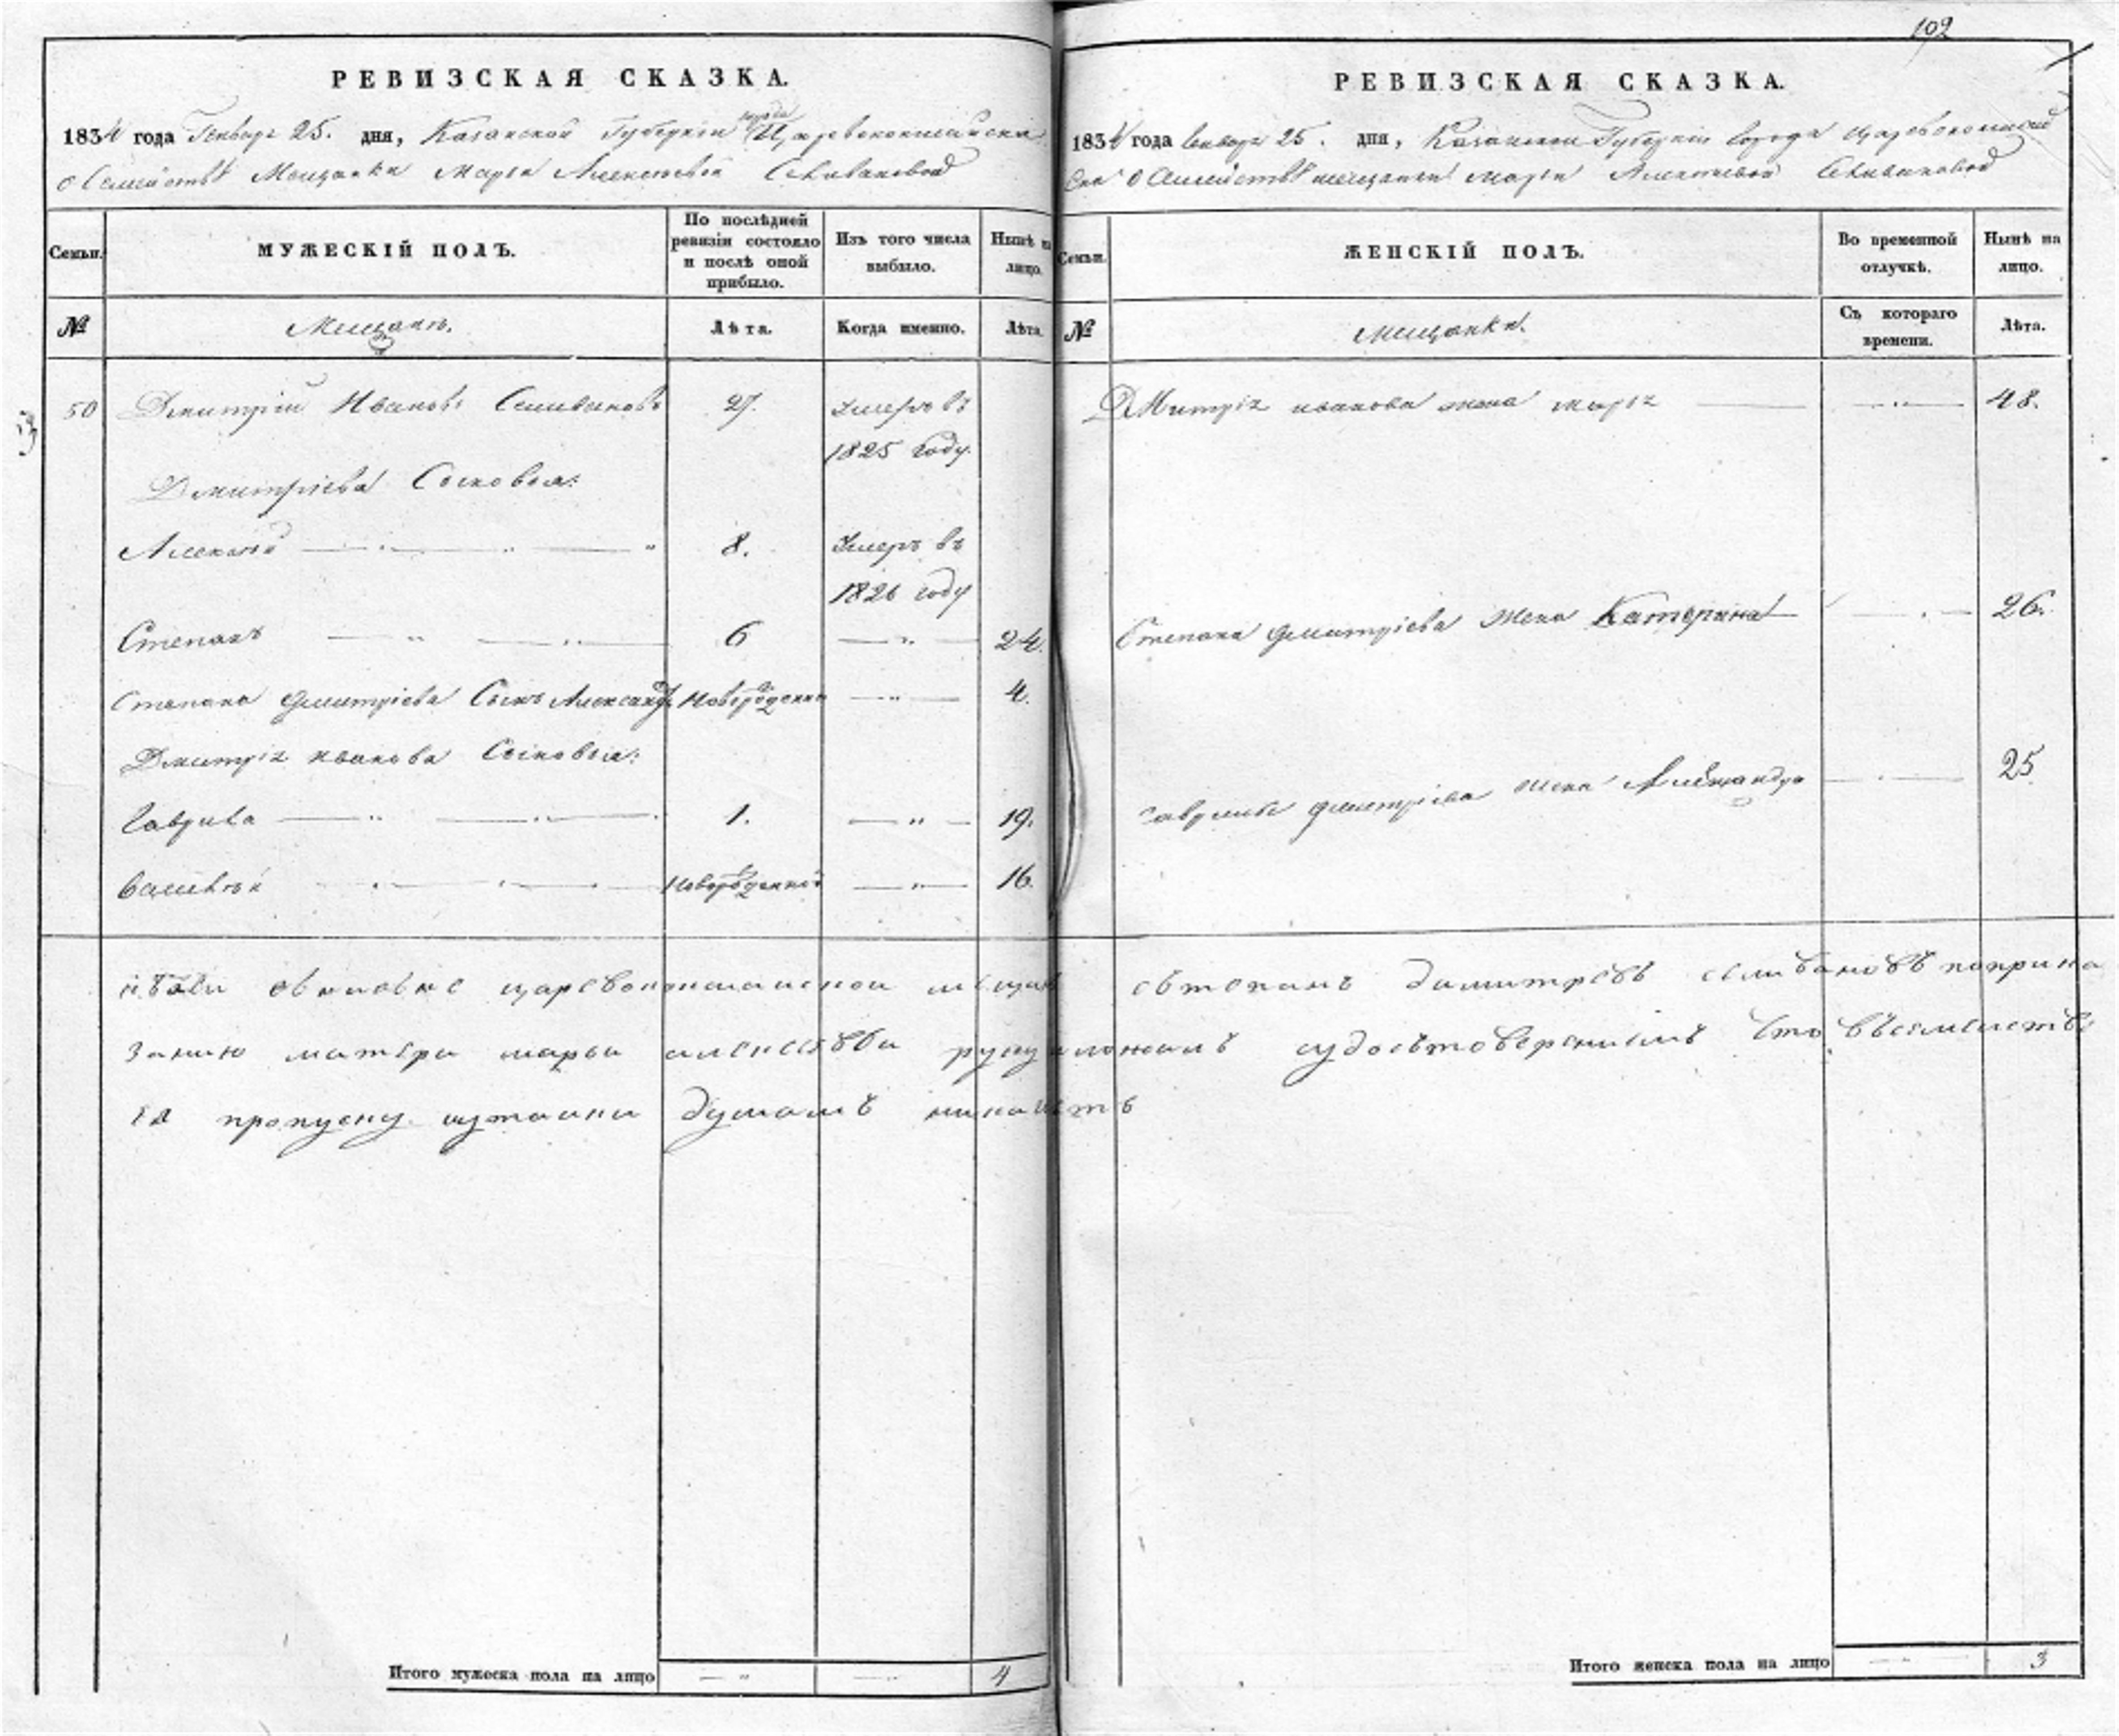 192
РЕВИЗСКАЯ СКАЗКА.
1834 года Генваря 25. дня, Казанской Губернии города Царевококшайска
о Семействе Мещанки Марьи Алексеевой Селивановой
Семьи.
МУЖЕСКІЙ ПОЛЪ.
По послѣдней ревизіи состояло и послѣ оной прибыло.
Изъ того числа выбыло.
Нынѣ на лицо.
№
Мещанъ.
Лѣта.
Когда именно.
Лѣта.
50 Дмитрій Ивановъ Селивановъ 27. Умеръ въ
1825 году.
Дмитріева Сыновья:
Алексей 8. Умеръ въ
1826 году
Степанъ 6 24.
Степана Дмитріева Сынъ Александръ Новорожденный 4.
Дмитрія Иванова Сыновья:
Гаврила 1. 19.
Василѣй Новорожденный 16.
Итого мужеска пола на лицо 4
РЕВИЗСКАЯ СКАЗКА.
1834 года Генваря 25. дня, Казанской Губерніи города Царевококшай
ска о Семействѣ мещанки Марьи Алексеевой Селивановой
Семьи.
ЖЕНСКІЙ ПОЛЪ.
Во временной отлучкѣ.
Нынѣ на лицо.
№
Мещанки.
Съ котораго времени.
Лѣта.
Дмитрія Иванова жена Марья 48.
Степана Дмитріева Жена Катерина 26.
Гаврилы Дмитріева жена Александра 25
царевококшаискои мещан степанъ димитревъ селивановъ поприка
занию матери марьи алексевои руку приложилъ
пропуску иутаики
Итого женска пола на лицо 3